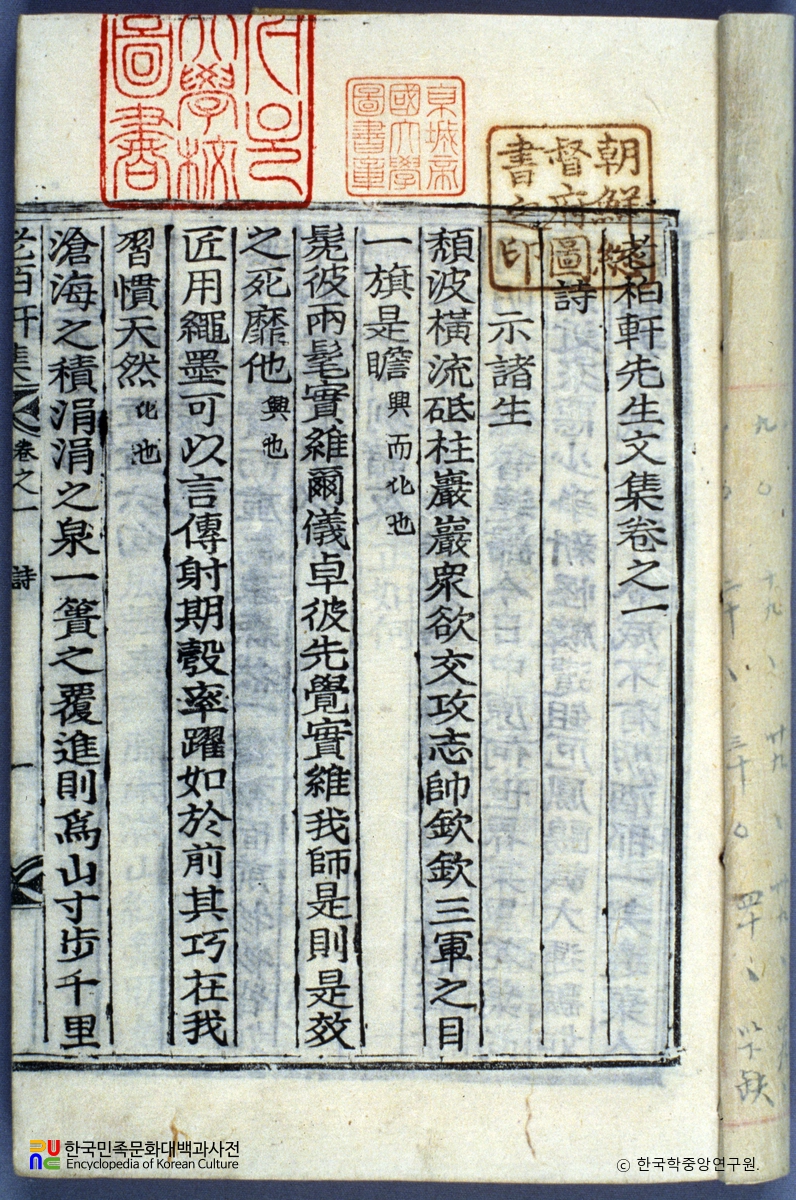 老栢軒先生文集卷之一
詩
示諸生
頹波橫流砥柱巖巖衆欲交攻志帥欽欽三軍之目
一旗是瞻 興而比也
髧彼兩髦實維爾儀卓彼先覺實維我師是則是效
之死靡他 興也
匠用繩墨可以言傳射期彀率躍如於前其巧在我
習慣天然 比也
滄海之積涓涓之泉一簣之覆進則爲山寸步千里
老栢軒集 卷之一 詩 一
朝鮮總
督府圖
書之印
京城帝
國大學
圖書章
大學校
圖書
한국민족문화대백과사전
Encyclopedia of Korean Culture
© 한국학중앙연구원.